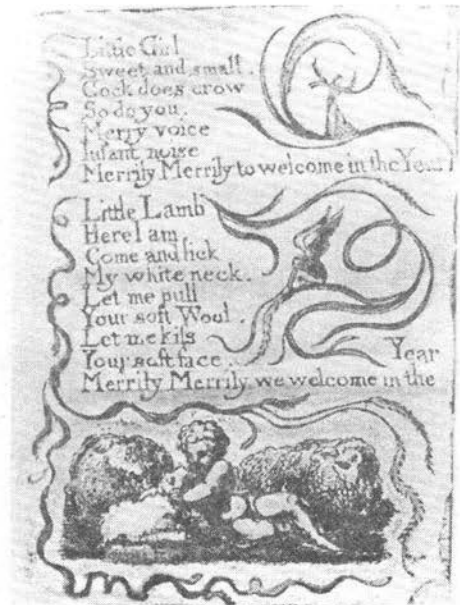 Little Girl
Sweet and small.
Cock does crow
So do you.
Merry voice
Infant noise
Merrily Merrily to welcome in the Year
Little Lamb
Here I am,
Come and lick
My white neck.
Let me pull
Your soft Wool.
Let me kiſs
Your soft face.
Merrily Merrily we welcome in the Year